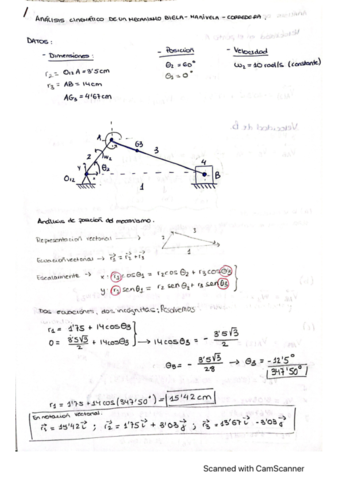 1/ ANÁLISIS CINEMÁTICO DE UN MECANISMO BIELA - MANIVELA - CORREDERA
DATOS:
- Dimensiones: - Posición - Velocidad
r₂ = O₁₂A = 3'5cm θ₂ = 60° ω₂ = 10 rad/s (constante)
r₃ = AB = 14cm θ₁ = 0°
AG₃ = 4'67cm
A G3 3
2 ω₂ 4
Y θ₂ B
O₁₂ x 1
Análisis de posición del mecanismo.
Representación vectorial → 2 3 1
Ecuación vectorial → r₁ = r₂ + r₃
Escalarmente → x: r₁ cosθ₁ = r₂cosθ₂ + r₃cosθ₃
y: r₁ senθ₁ = r₂ senθ₂ + r₃ senθ₃
Dos ecuaciones, dos incógnitas; Resolvemos
r₁ = 1'75 + 14cosθ₃
0 = 3'5√3/2 + 14cosθ₃ → 14cosθ₃ = - 3'5√3/2
θ₃ = - 3'5√3/28 → θ₃ = -12'5°
347'50°
r₁ = 1'75 + 14cos(347'50°) = 15'42 cm
En notación vectorial:
r₁ = 15'42 i ; r₂ = 1'75 i + 3'03 j ; r₃ = 13'67 i - 3'03 j
Scanned with CamScanner